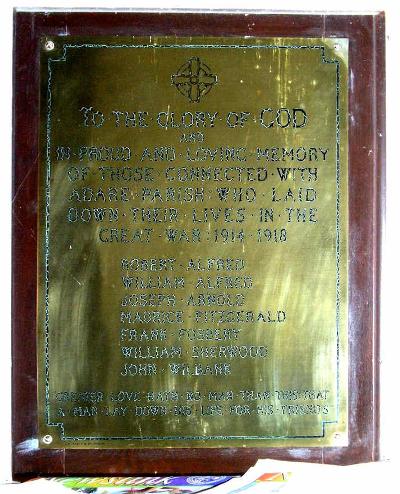 TO·THE·GLORY·OF·GOD
AND
IN·PROUD·AND·LOVING·MEMORY
OF·THOSE·CONNECTED·WITH
ADARE·PARISH·WHO·LAID
DOWN·THEIR·LIVES·IN·THE
GREAT·WAR:1914-1918
ROBERT·ALFRED
WILLIAM·ALFRED
JOSEPH·ARNOLD
MAURICE·FITZGERALD
FRANK·FOSBERY
WILLIAM·SHERWOOD
JOHN·WILBANK
GREATER·LOVE·HATH·NO·MAN·THAN·THIS·THAT
A·MAN·LAY·DOWN·HIS·LIFE·FOR·HIS·FRIENDS